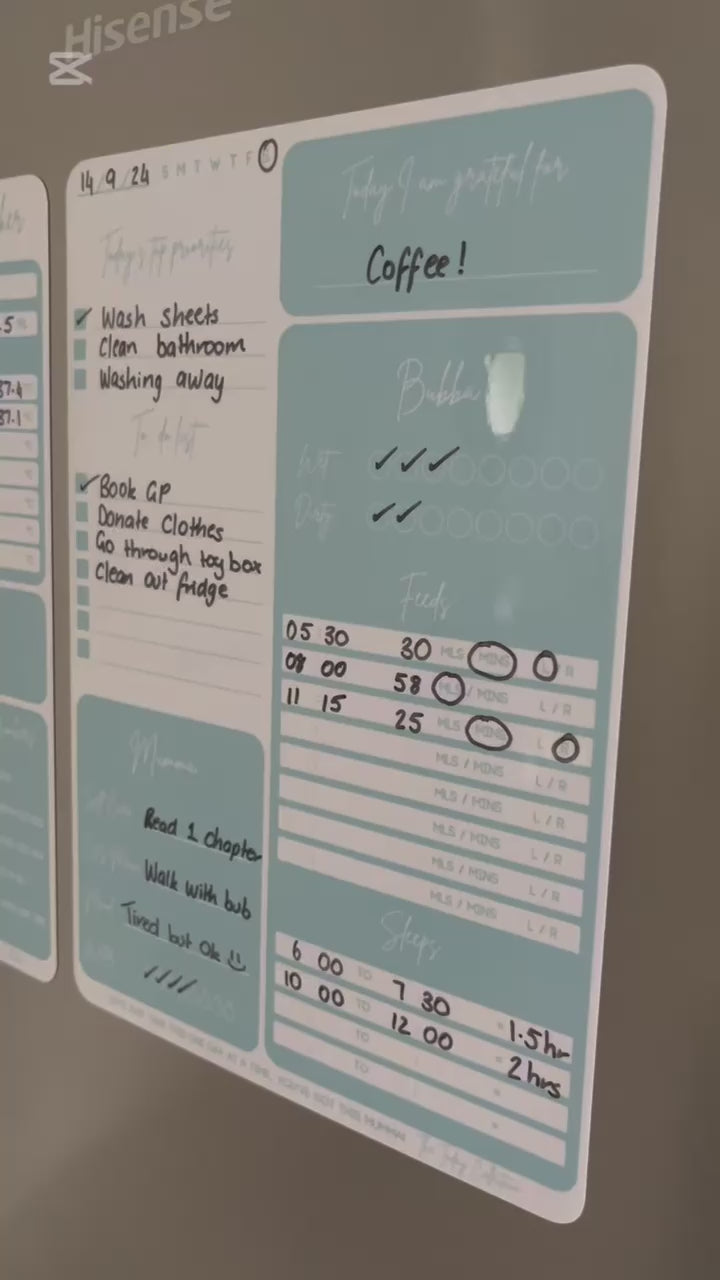 Hisense
14/9/24 S M T W T F S
Today's top priorities
✓ Wash sheets
Clean bathroom
Washing away
To do list
✓ Book GP
Donate Clothes
Go through toy box
Clean out fridge
Mumma
Read 1 Chapter
Walk with bub
Tired but Ok
✓✓✓✓
Today I am grateful for
Coffee!
Bubba
Wet ✓✓✓
Dirty ✓✓
Feeds
05 30 30 MLS / MINS L / R
08 00 58 MLS / MINS L / R
11 15 25 MLS / MINS L / R
MLS / MINS L / R
MLS / MINS L / R
MLS / MINS L / R
MLS / MINS L / R
MLS / MINS L / R
Sleeps
6 00 TO 7 30 = 1.5hr
10 00 TO 12 00 = 2hrs
TO =
TO =
37.4
37.1